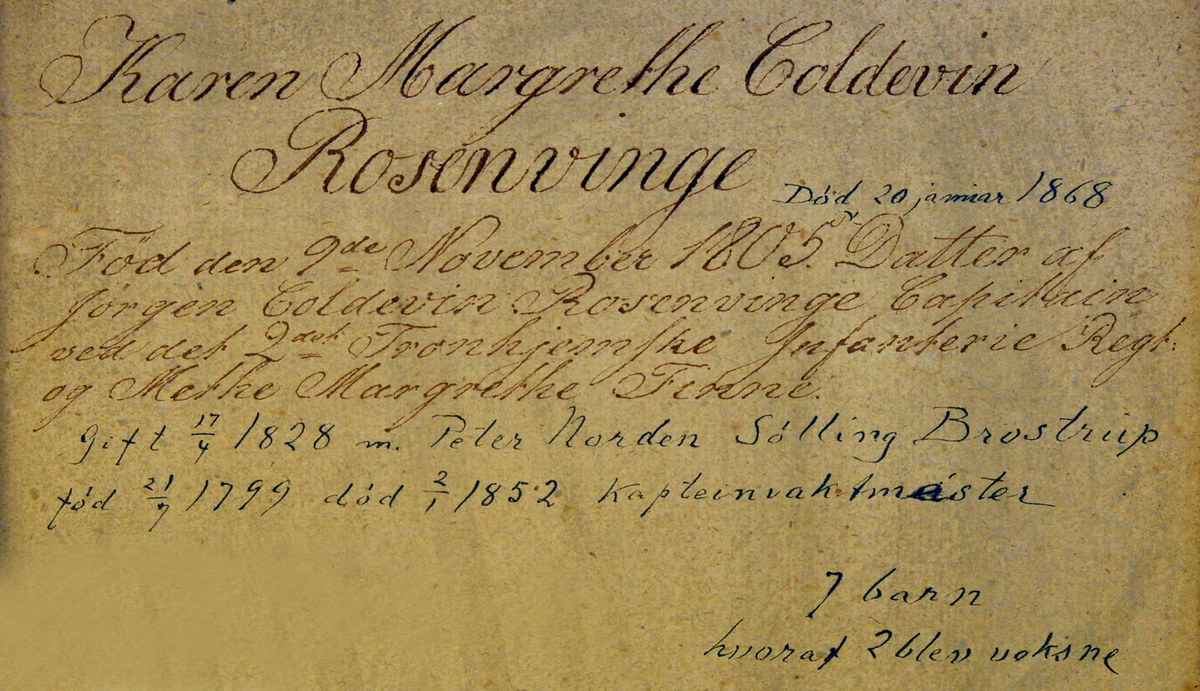 Karen Margrethe Coldevin
Rosenvinge
Død 20 januar 1868
Fød den 9de November 1805. Datter af
Jørgen Coldevin Rosenvinge Capitain
ved det 2det Tronhjemske Infanterie Regt:
og Methe Margrethe Finne.
Gift 17/4 1828 m. Peter Norden Sólling Brostrup
fód 21/7 1799 dód 2/1 1852 Kapteinvaktmáster
7 barn
hvoraf 2 blev voksne